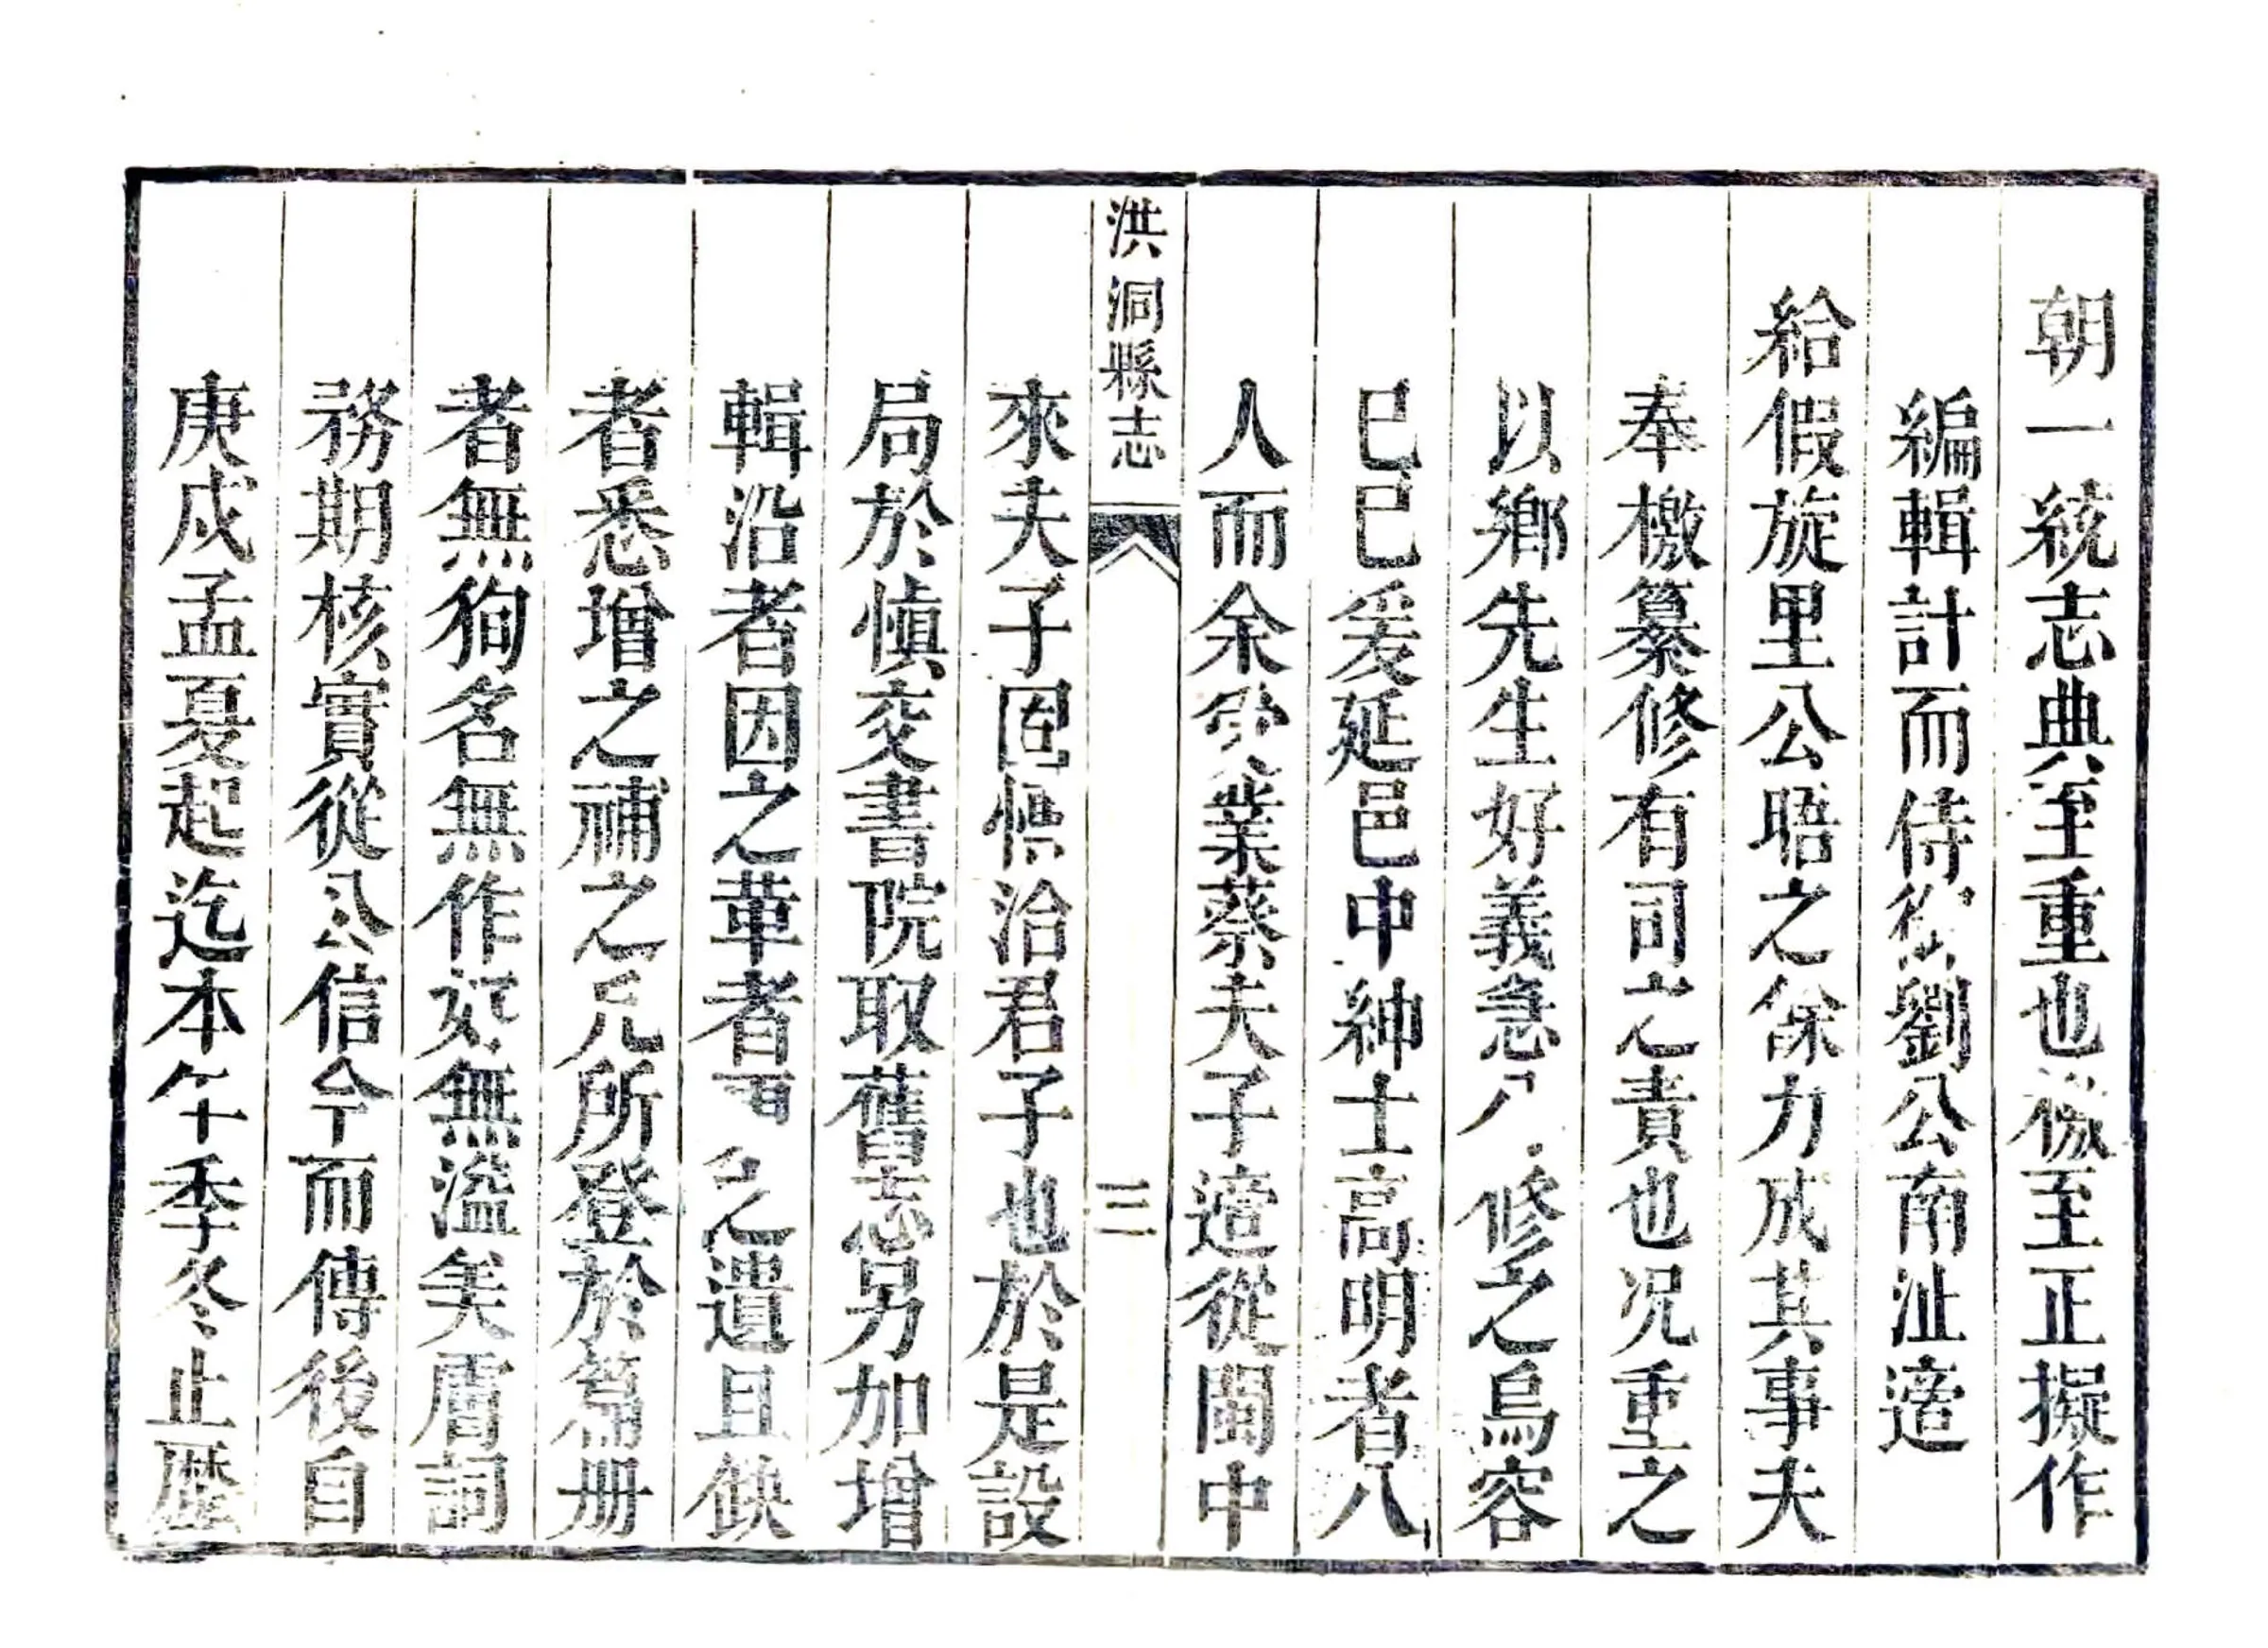 朝一統志典至重也檄至正擬作
編輯計而侍御劉公南沚適
給假旋里公晤之俾力成其事夫
奉檄纂修有司之責也況重之
以鄉先生好義急公修之烏容
已已爰延邑中紳士高明者八
人而余受業蔡夫子適從閩中
洪洞縣志
三
來夫子固博洽君子也於是設
局於慎交書院取舊志另加增
輯沿者因之革者百之遺且缺
者悉增之補之凡所登於篇册
者無狥名無作好無溢美膚詞
務期核實從公信今而傳後自
庚戌孟夏起迄本年季冬止歷